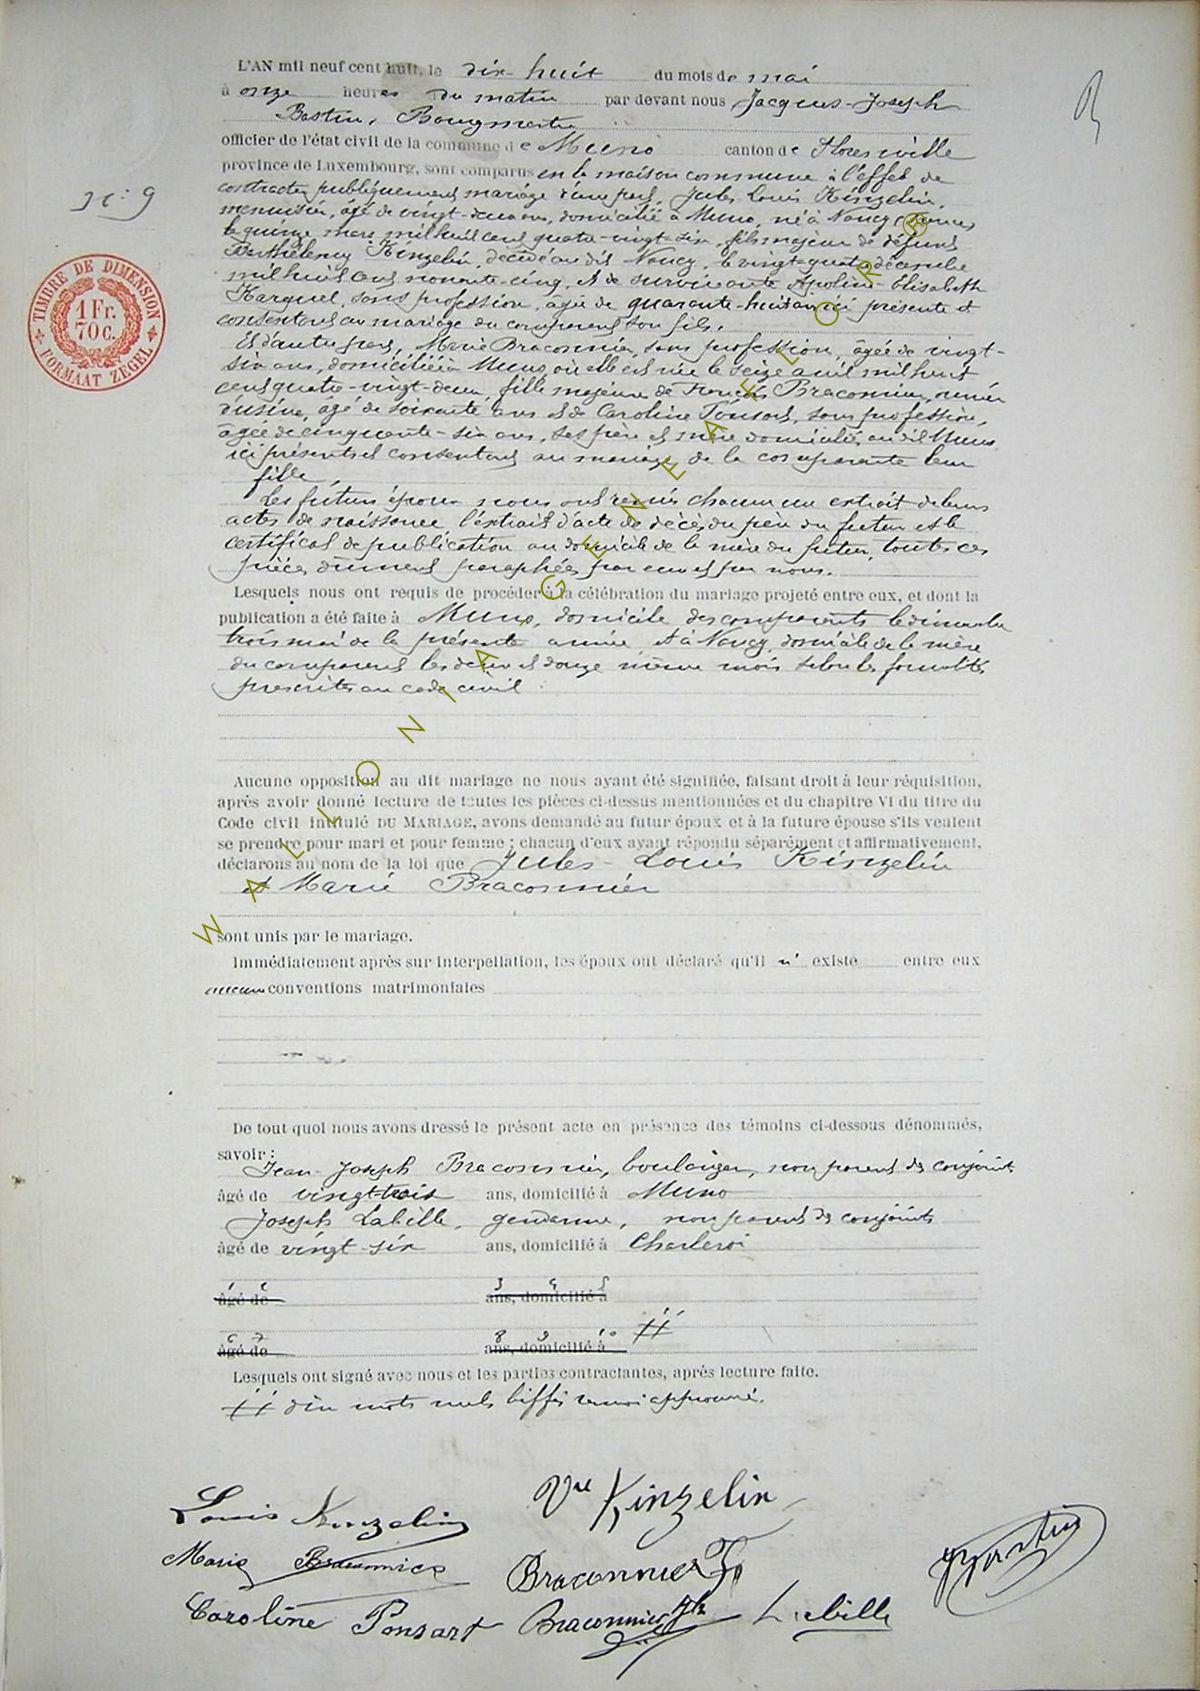 L'AN mil neuf cent huit, le dix-huit du mois de mai
à onze heures du matin par devant nous Jacques-Joseph
Bastin, Bourgmestre
officier de l'état civil de la commune de Muno canton de Florenville
province de Luxembourg, sont comparus en la maison commune à l'effet de
contracter publiquement mariage d'une part, Jules Louis Kinzelin,
menuisier, âgé de vingt-deux ans, domicilié à Muno, né à Nancy
le quinze mars mil huit cent quatre-vingt-six, fils majeur de défunt
Barthélemy Kinzelin, décédé au dit Nancy, le vingt-quatre décembre
mil huit cent nonante-cinq, et de survivante Apoline-Elisabeth
Karquel, sans profession, âgée de quarante-huit ans ici présente et
consentant au mariage du comparant son fils.
Et d'autre part, Marie Braconnier, sans profession, âgée de vingt-
six ans, domiciliée à Muno, où elle est née le seize avril mil huit
cent quatre-vingt-deux, fille majeure de François Braconnier, ouvrier
d'usine, âgé de soixante ans et de Caroline Ponsart, sans profession,
âgée de cinquante-six ans, ses père et mère domiciliés au dit Muno
ici présents et consentant au mariage de la comparante leur
fille.
Les futurs époux nous ont remis chacun un extrait de leurs
actes de naissance l'extrait d'acte de décès du père du futur et le
certificat de publication au domicile de la mère du futur, toutes ces
pièces dument paraphées par eux et par nous.
Lesquels nous ont requis de procéder à la célébration du mariage projeté entre eux, et dont la
publication a été faite à Muno, domicile des comparants le dimanche
trois mai de la présente année et à Nancy, domicile de la mère
du comparant les deux et douze même mois selon les formalités
prescrites au code civil.
Aucune opposition au dit mariage ne nous ayant été signifiée, faisant droit à leur réquisition,
après avoir donné lecture de toutes les pièces ci-dessus mentionnées et du chapitre VI du titre du
Code civil intitulé DU MARIAGE, avons demandé au futur époux et à la future épouse s'ils veulent
se prendre pour mari et pour femme ; chacun d'eux ayant répondu séparément et affirmativement,
déclarons au nom de la loi que Jules-Louis Kinzelin
et Marie Braconnier
sont unis par le mariage.
Immédiatement après sur interpellation, les époux ont déclaré qu'il n' existe entre eux
aucune conventions matrimoniales
De tout quoi nous avons dressé le présent acte en présence des témoins ci-dessous dénommés,
savoir :
Jean-Joseph Braconnier, boulanger, non parent des conjoints
âgé de vingt-trois ans, domicilié à Muno
Joseph Labille, gendarme, non parent des conjoints
âgé de vingt-six ans, domicilié à Charleroi
âgé de ans, domicilié à
âgé de ans, domicilié à
Lesquels ont signé avec nous et les parties contractantes, après lecture faite.
dix mots nuls biffés renvoi approuvé.
Louis Kinzelin Vve Kinzelin
Marie Braconnier Braconnier F. JJBastin
Caroline Ponsart Braconnier Labille
N: 9
TIMBRE DE DIMENSION
1 Fr.
70 c.
FORMAAT ZEGEL
WALLONIA GENEALOR